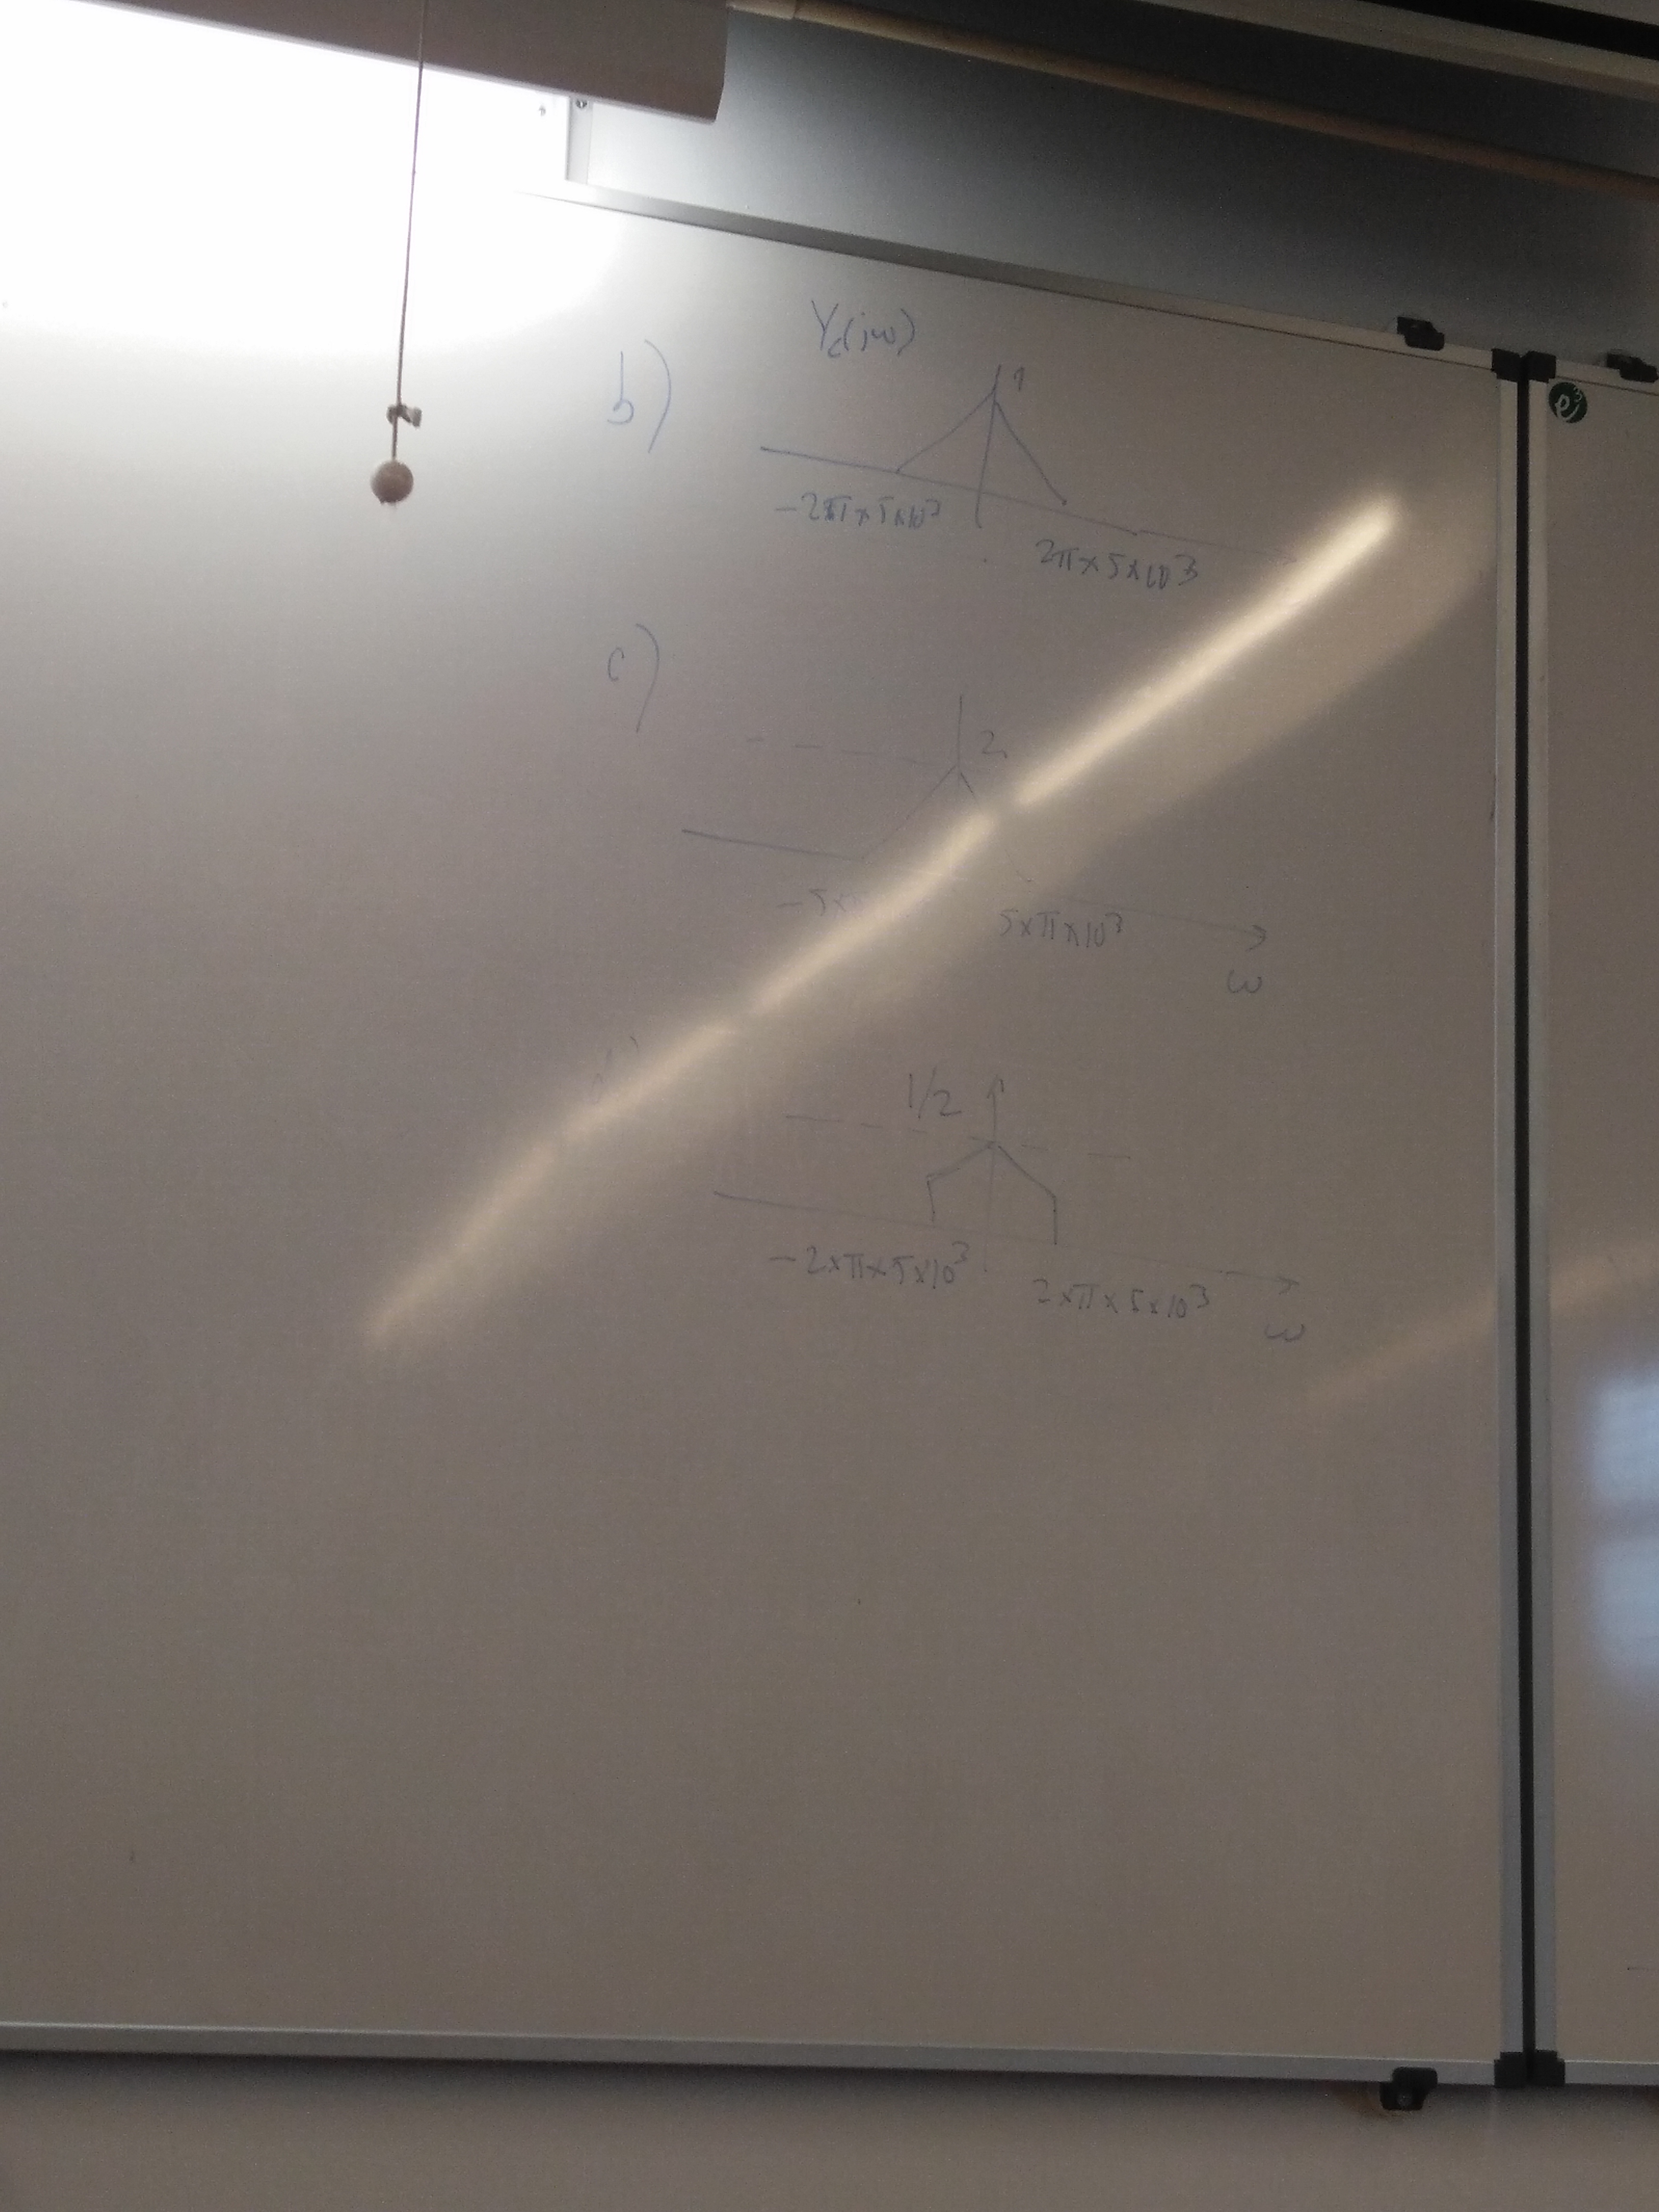 Yc(jω)
b)
1
-2π×5×10³
2π×5×10³
c)
2
-5×
5×π×10³
ω
1/2
-2×π×5×10³
2×π×5×10³
ω
e³